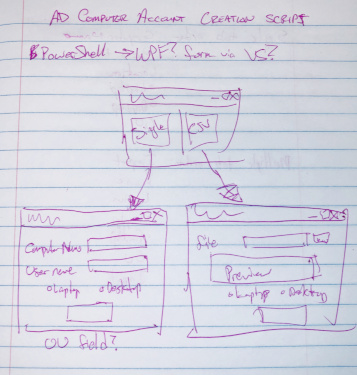 AD Computer Account Creation Script
PowerShell -> WPF? form via VS?
Single
CSV
Computer Name
User name
Laptop Desktop
OU field?
File
Preview
Laptop Desktop